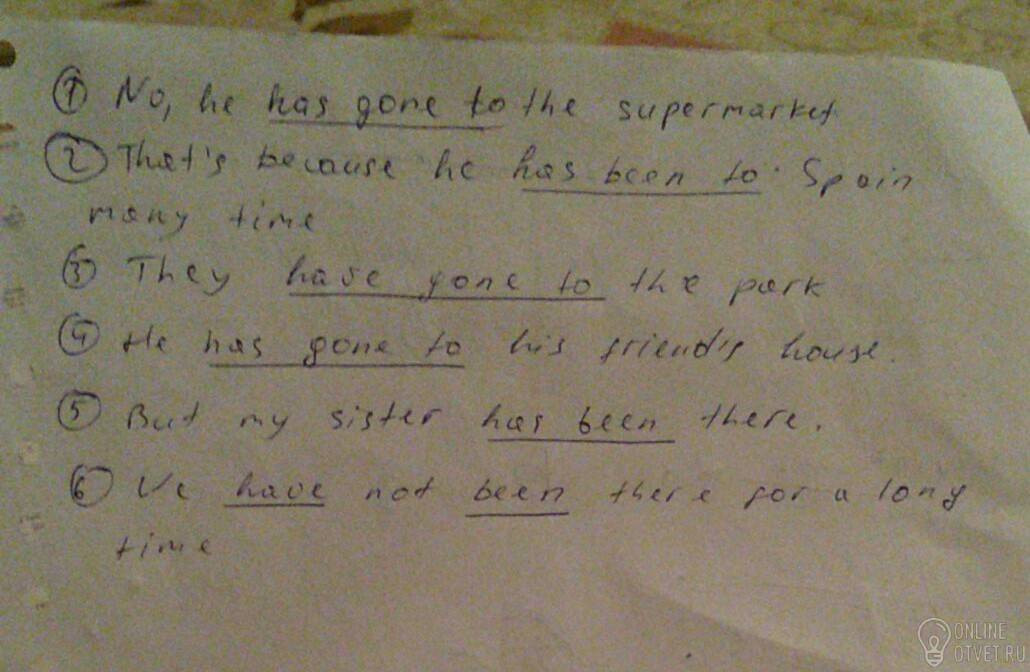 1 No, he has gone to the supermarket
2 That's because he has been to Spain
many time
3 They have gone to the park
4 He has gone to his friend's house.
5 But my sister has been there.
6 We have not been there for a long
time
ONLINE
OTVET.RU